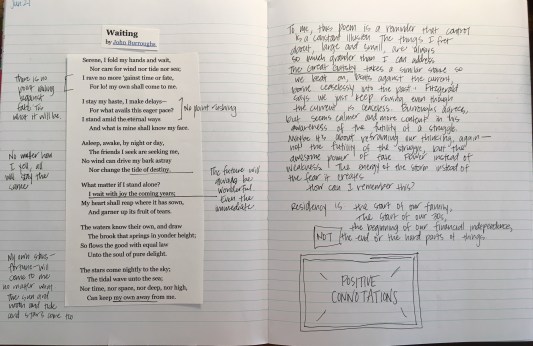 Jan 21
Waiting
by John Burroughs
Serene, I fold my hands and wait,
Nor care for wind nor tide nor sea;
I rave no more 'gainst time or fate,
For lo! my own shall come to me.
I stay my haste, I make delays—
For what avails this eager pace?
I stand amid the eternal ways
And what is mine shall know my face.
Asleep, awake, by night or day,
The friends I seek are seeking me,
No wind can drive my bark astray
Nor change the tide of destiny.
What matter if I stand alone?
I wait with joy the coming years;
My heart shall reap where it has sown,
And garner up its fruit of tears.
The waters know their own, and draw
The brook that springs in yonder height;
So flows the good with equal law
Unto the soul of pure delight.
The stars come nightly to the sky;
The tidal wave unto the sea;
Nor time, nor space, nor deep, nor high,
Can keep my own away from me.
There is no
point raving
against
fate. It is
what it will be.
No point rushing
No matter how
I yell, all
will stay the
same
The future will
always be
wonderful.
Even the
immediate.
My own stars—
fortune—will
come to me
no matter what
the sun and
moon and tide
and stars come too
To me, this poem is a reminder that control
is a constant illusion. The things I fret
about, large and small, are always
so much grander than I can address.
The Great Gatsby takes a similar stance so
we beat on, boats against the current,
borne ceaselessly into the past. Fitzgerald
says we just keep rowing even though
the current is ceaseless. Burroughs agrees,
but seems calmer and more content in his
awareness of the futility of a struggle.
Maybe it's about reframing our thinking, again—
not the futility of the struggle, but the
awesome power of fate. Power instead of
weakness. The energy of the storm instead of
the fear it creates.
How can I remember this?
Residency is the start of our family,
the start of our 30s,
the beginning of our financial independence,
NOT the end or the hard parts of things.
POSITIVE
CONNOTATIONS